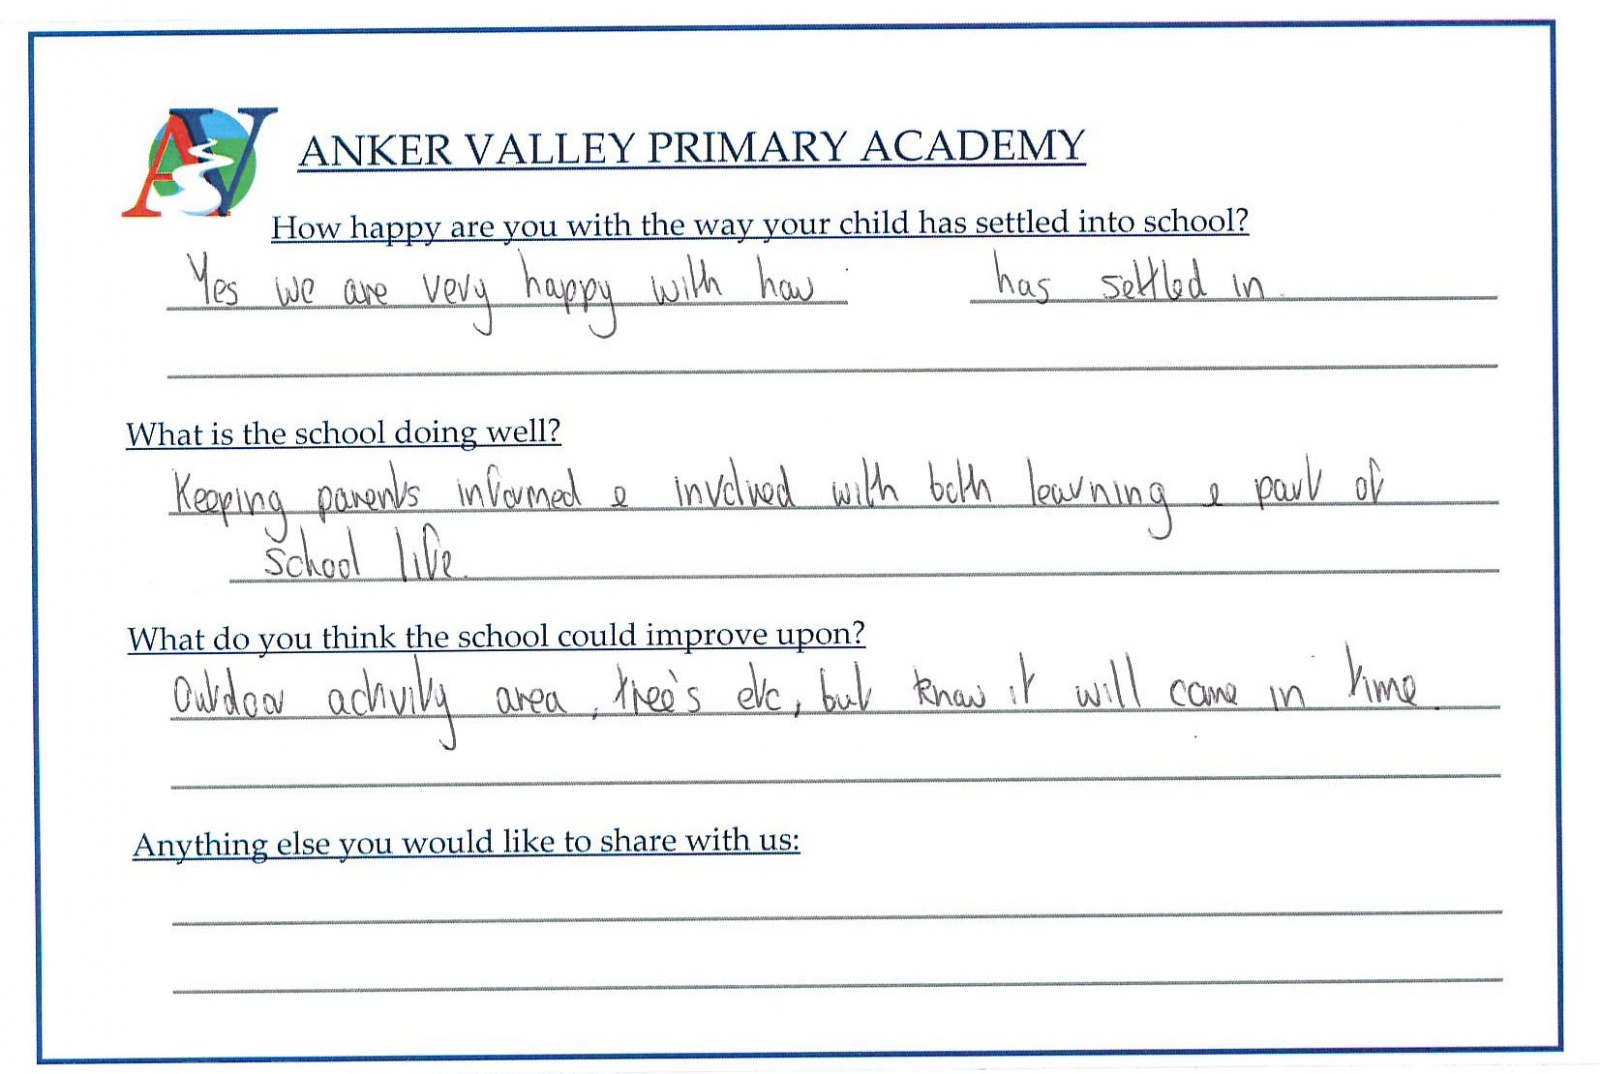 AV
ANKER VALLEY PRIMARY ACADEMY
How happy are you with the way your child has settled into school?
Yes we are very happy with how has settled in.
What is the school doing well?
Keeping parents informed & involved with both learning & part of
school life.
What do you think the school could improve upon?
Outdoor activity area, tree's etc, but know it will come in time.
Anything else you would like to share with us: